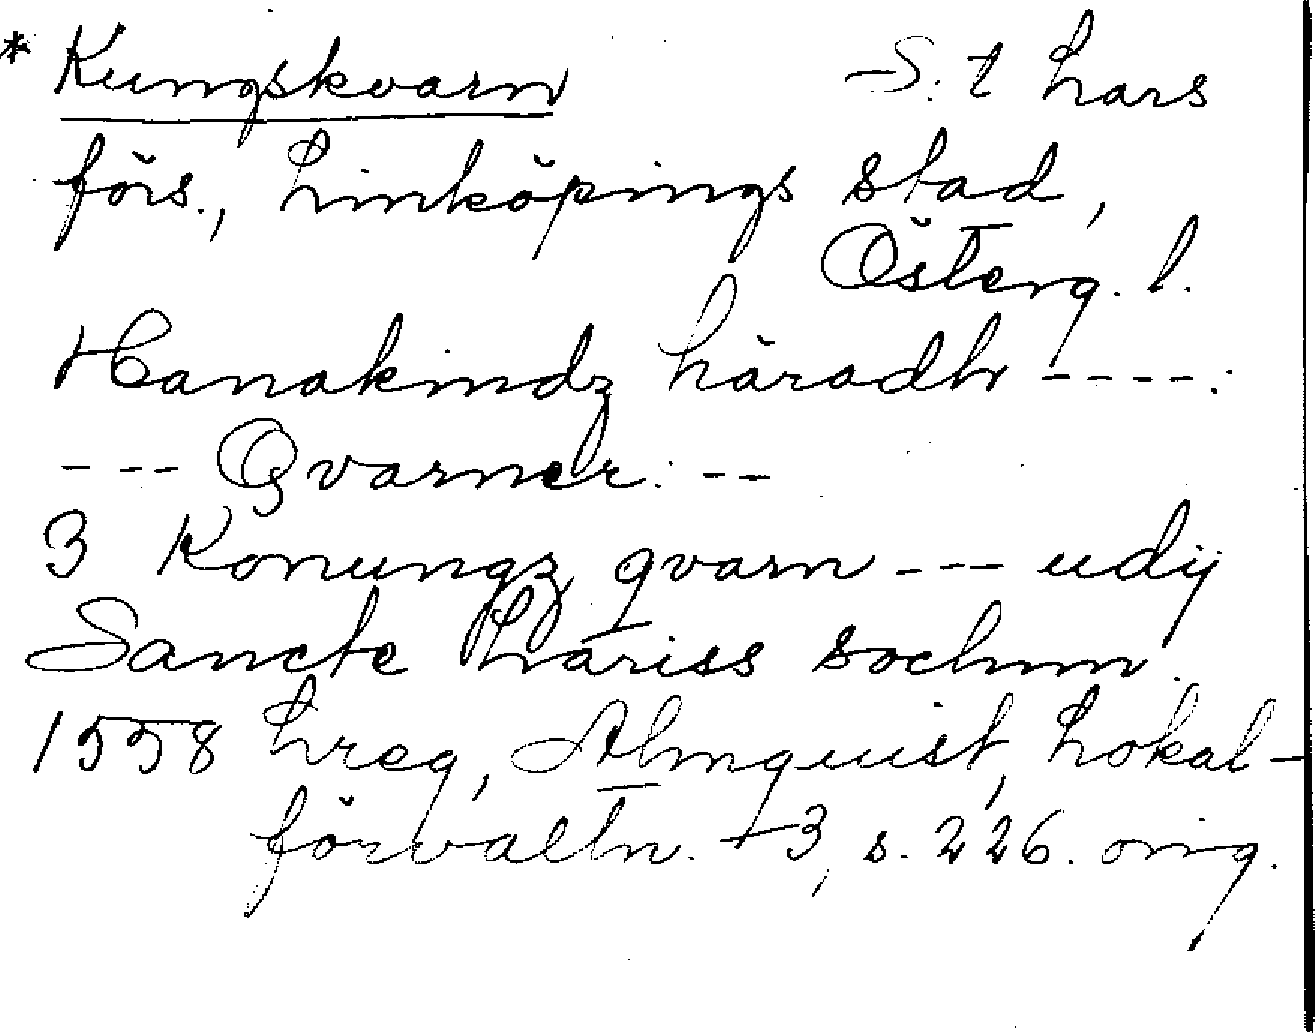 * Kungskvarn S:t Lars
förs., Linköpings stad,
Österg. l.
Hanakindz häradh ----:
--- Qvarner: --
3 Konungz qvarn --- udij
Sancte Lariss sochnn.
1558 Lreg, Almquist, Lokal-
förvaltn. +3, s. 226. orig.